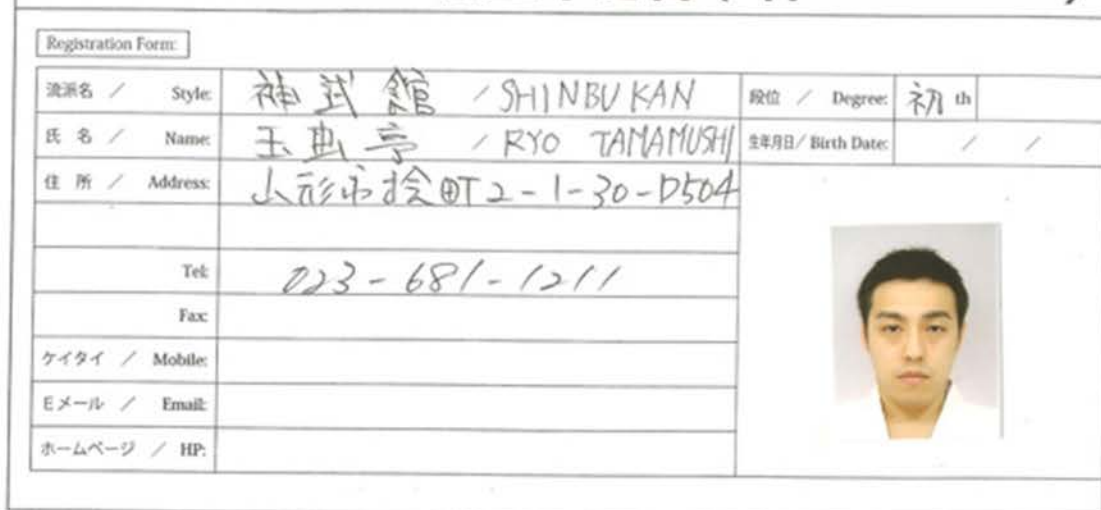 Registration Form:
流派名 / Style: 神武館 / SHINBUKAN 段位 / Degree: 初 th
氏 名 / Name: 玉虫亭 / RYO TAMAMUSHI 生年月日 / Birth Date: / /
住 所 / Address: 山形市 町2-1-30-D504
Tel: 023-681-1211
Fax:
ケイタイ / Mobile:
Eメール / Email:
ホームページ / HP: